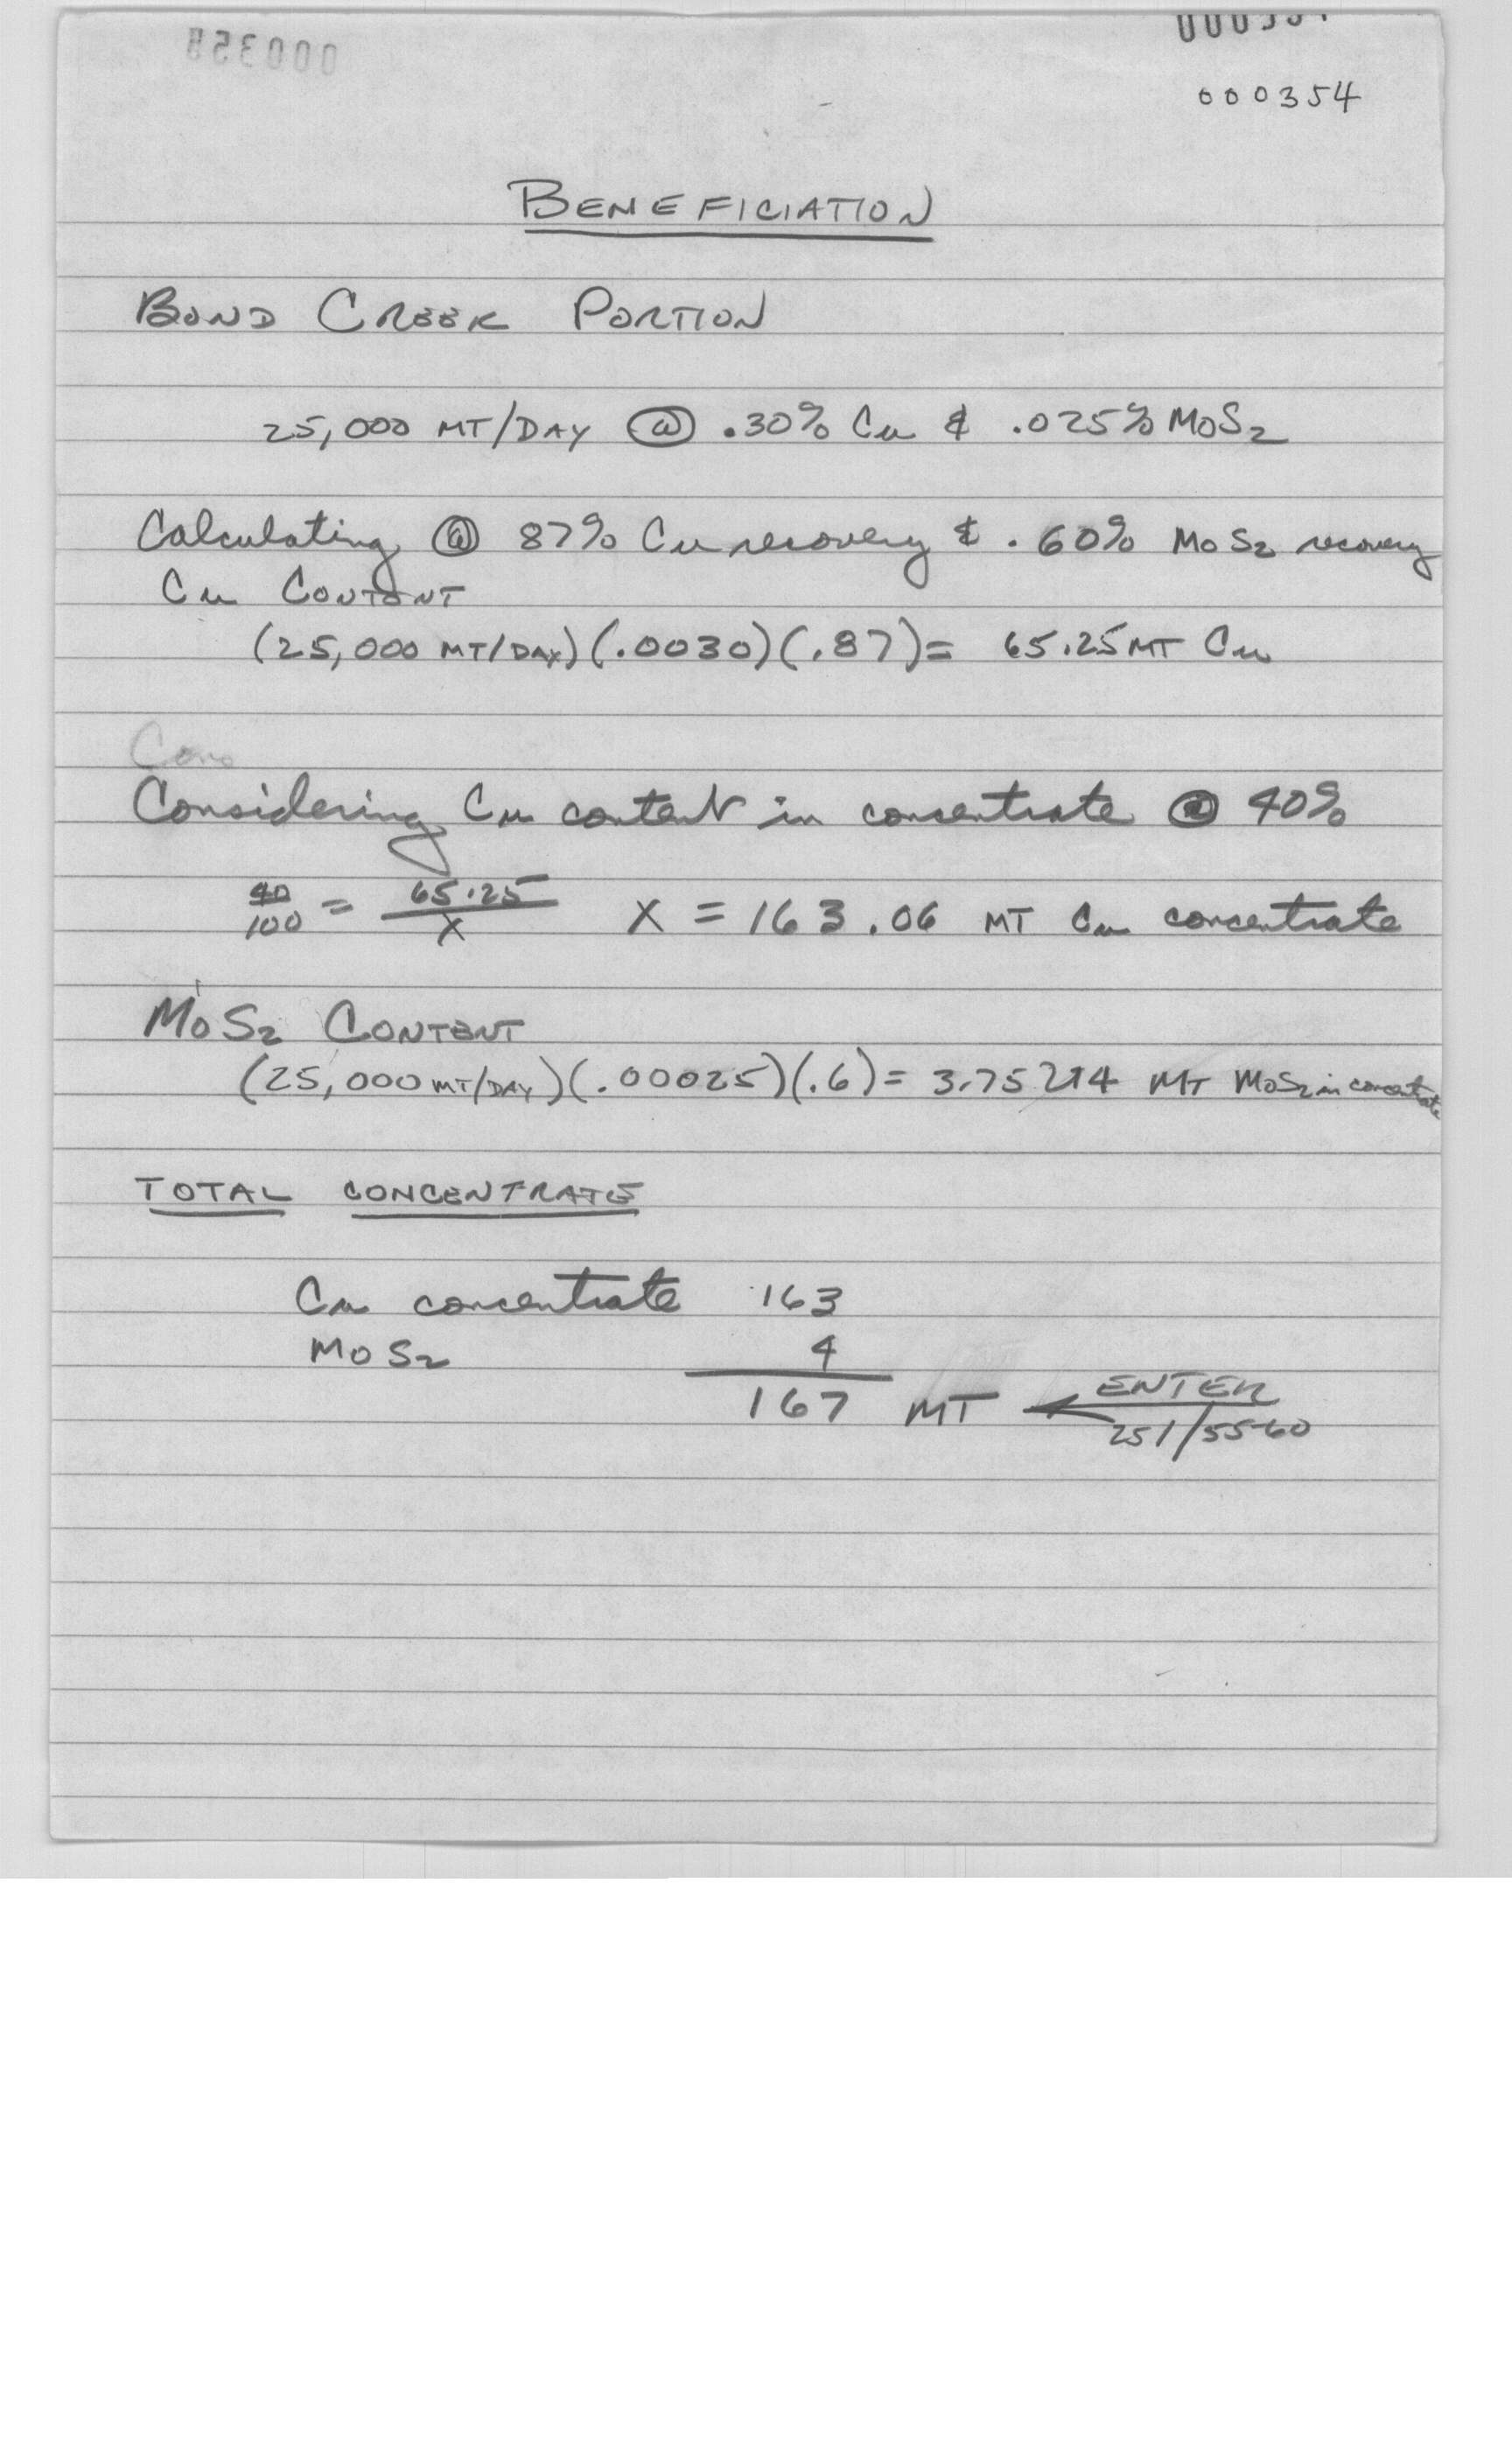 000354
BENEFICIATION
BOND CREEK PORTION
25,000 MT/DAY @ .30% Cu & .025% MoS2
Calculating @ 87% Cu recovery & .60% MoS2 recovery
Cu CONTENT
(25,000 MT/DAY)(.0030)(.87)= 65.25 MT Cu
Conc
Considering Cu content in concentrate @ 40%
40/100 = 65.25/X X = 163.06 MT Cu concentrate
MoS2 CONTENT
(25,000 MT/DAY)(.00025)(.6)= 3.75 MT MoS2 in concentrate
TOTAL CONCENTRATE
Cu concentrate 163
MoS2 4
167 MT ← ENTER
251/55-60